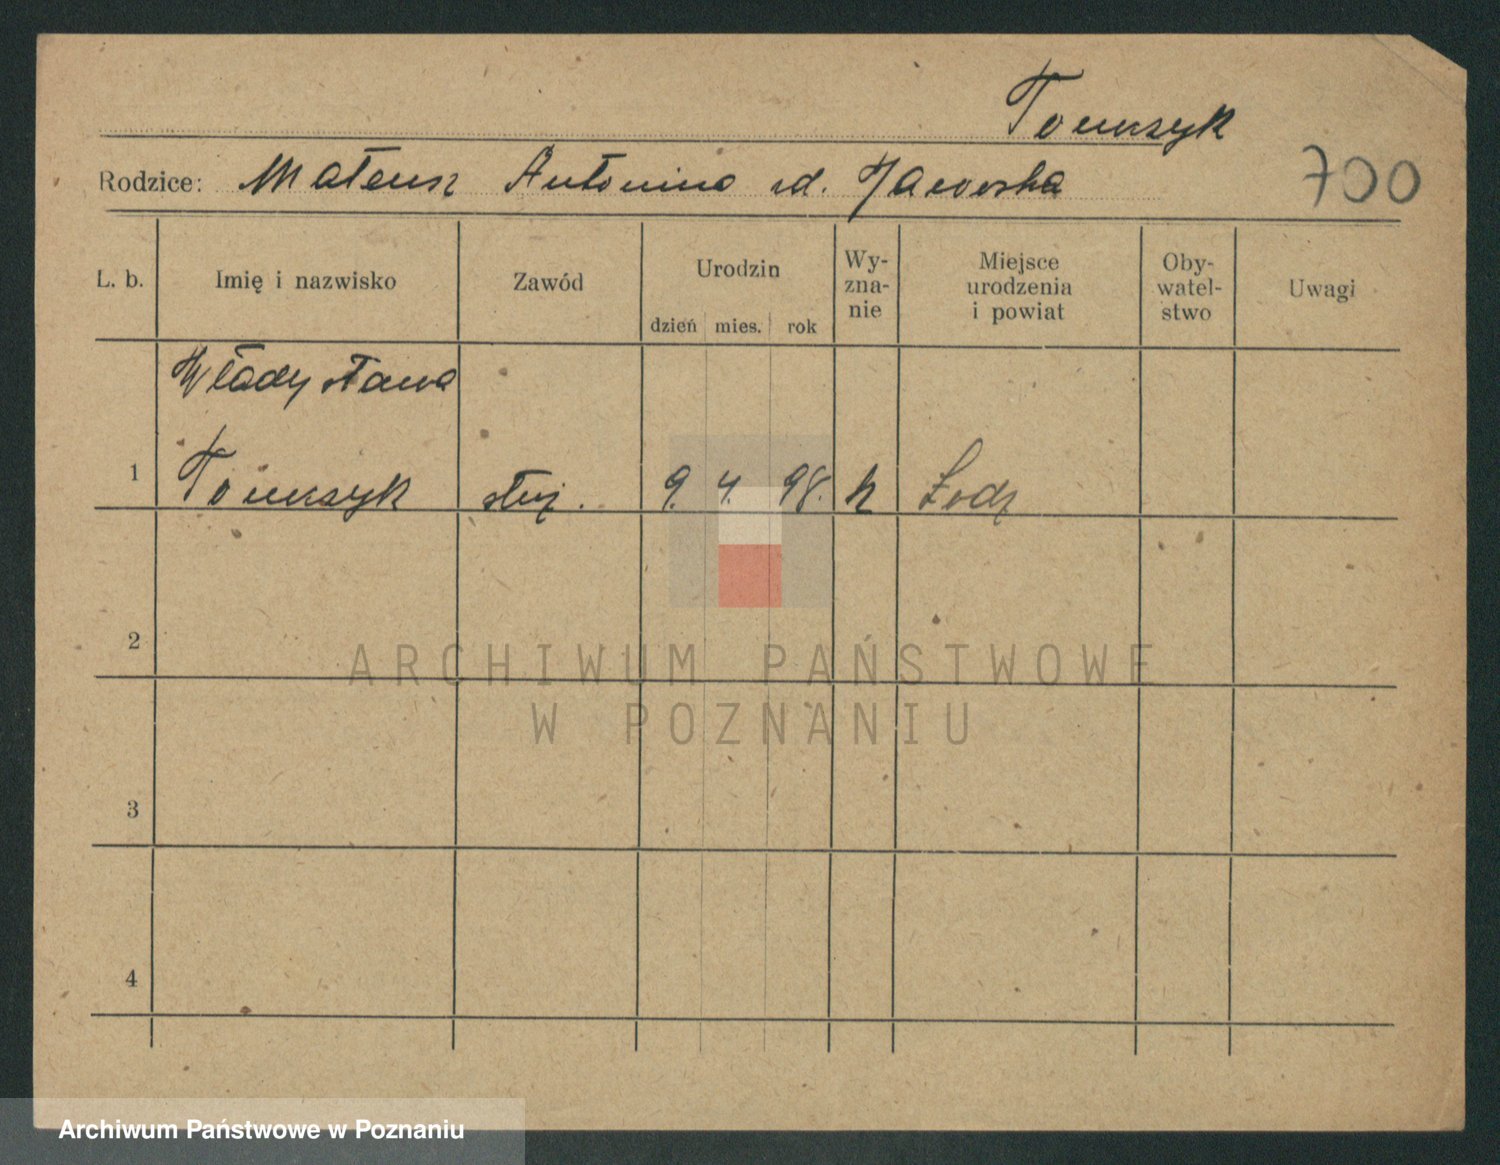 Tomszyk
Rodzice: Mateusz Antonina zd. Jaworska 700
L. b. Imię i nazwisko Zawód Urodzin dzień mies. rok Wy-
zna-
nie Miejsce
urodzenia
i powiat Oby-
watel-
stwo Uwagi
Władysława
1 Tomszyk służ. 9. 4. 98. k Łodz
2
ARCHIWUM PAŃSTWOWE
W POZNANIU
3
4
Archiwum Państwowe w Poznaniu